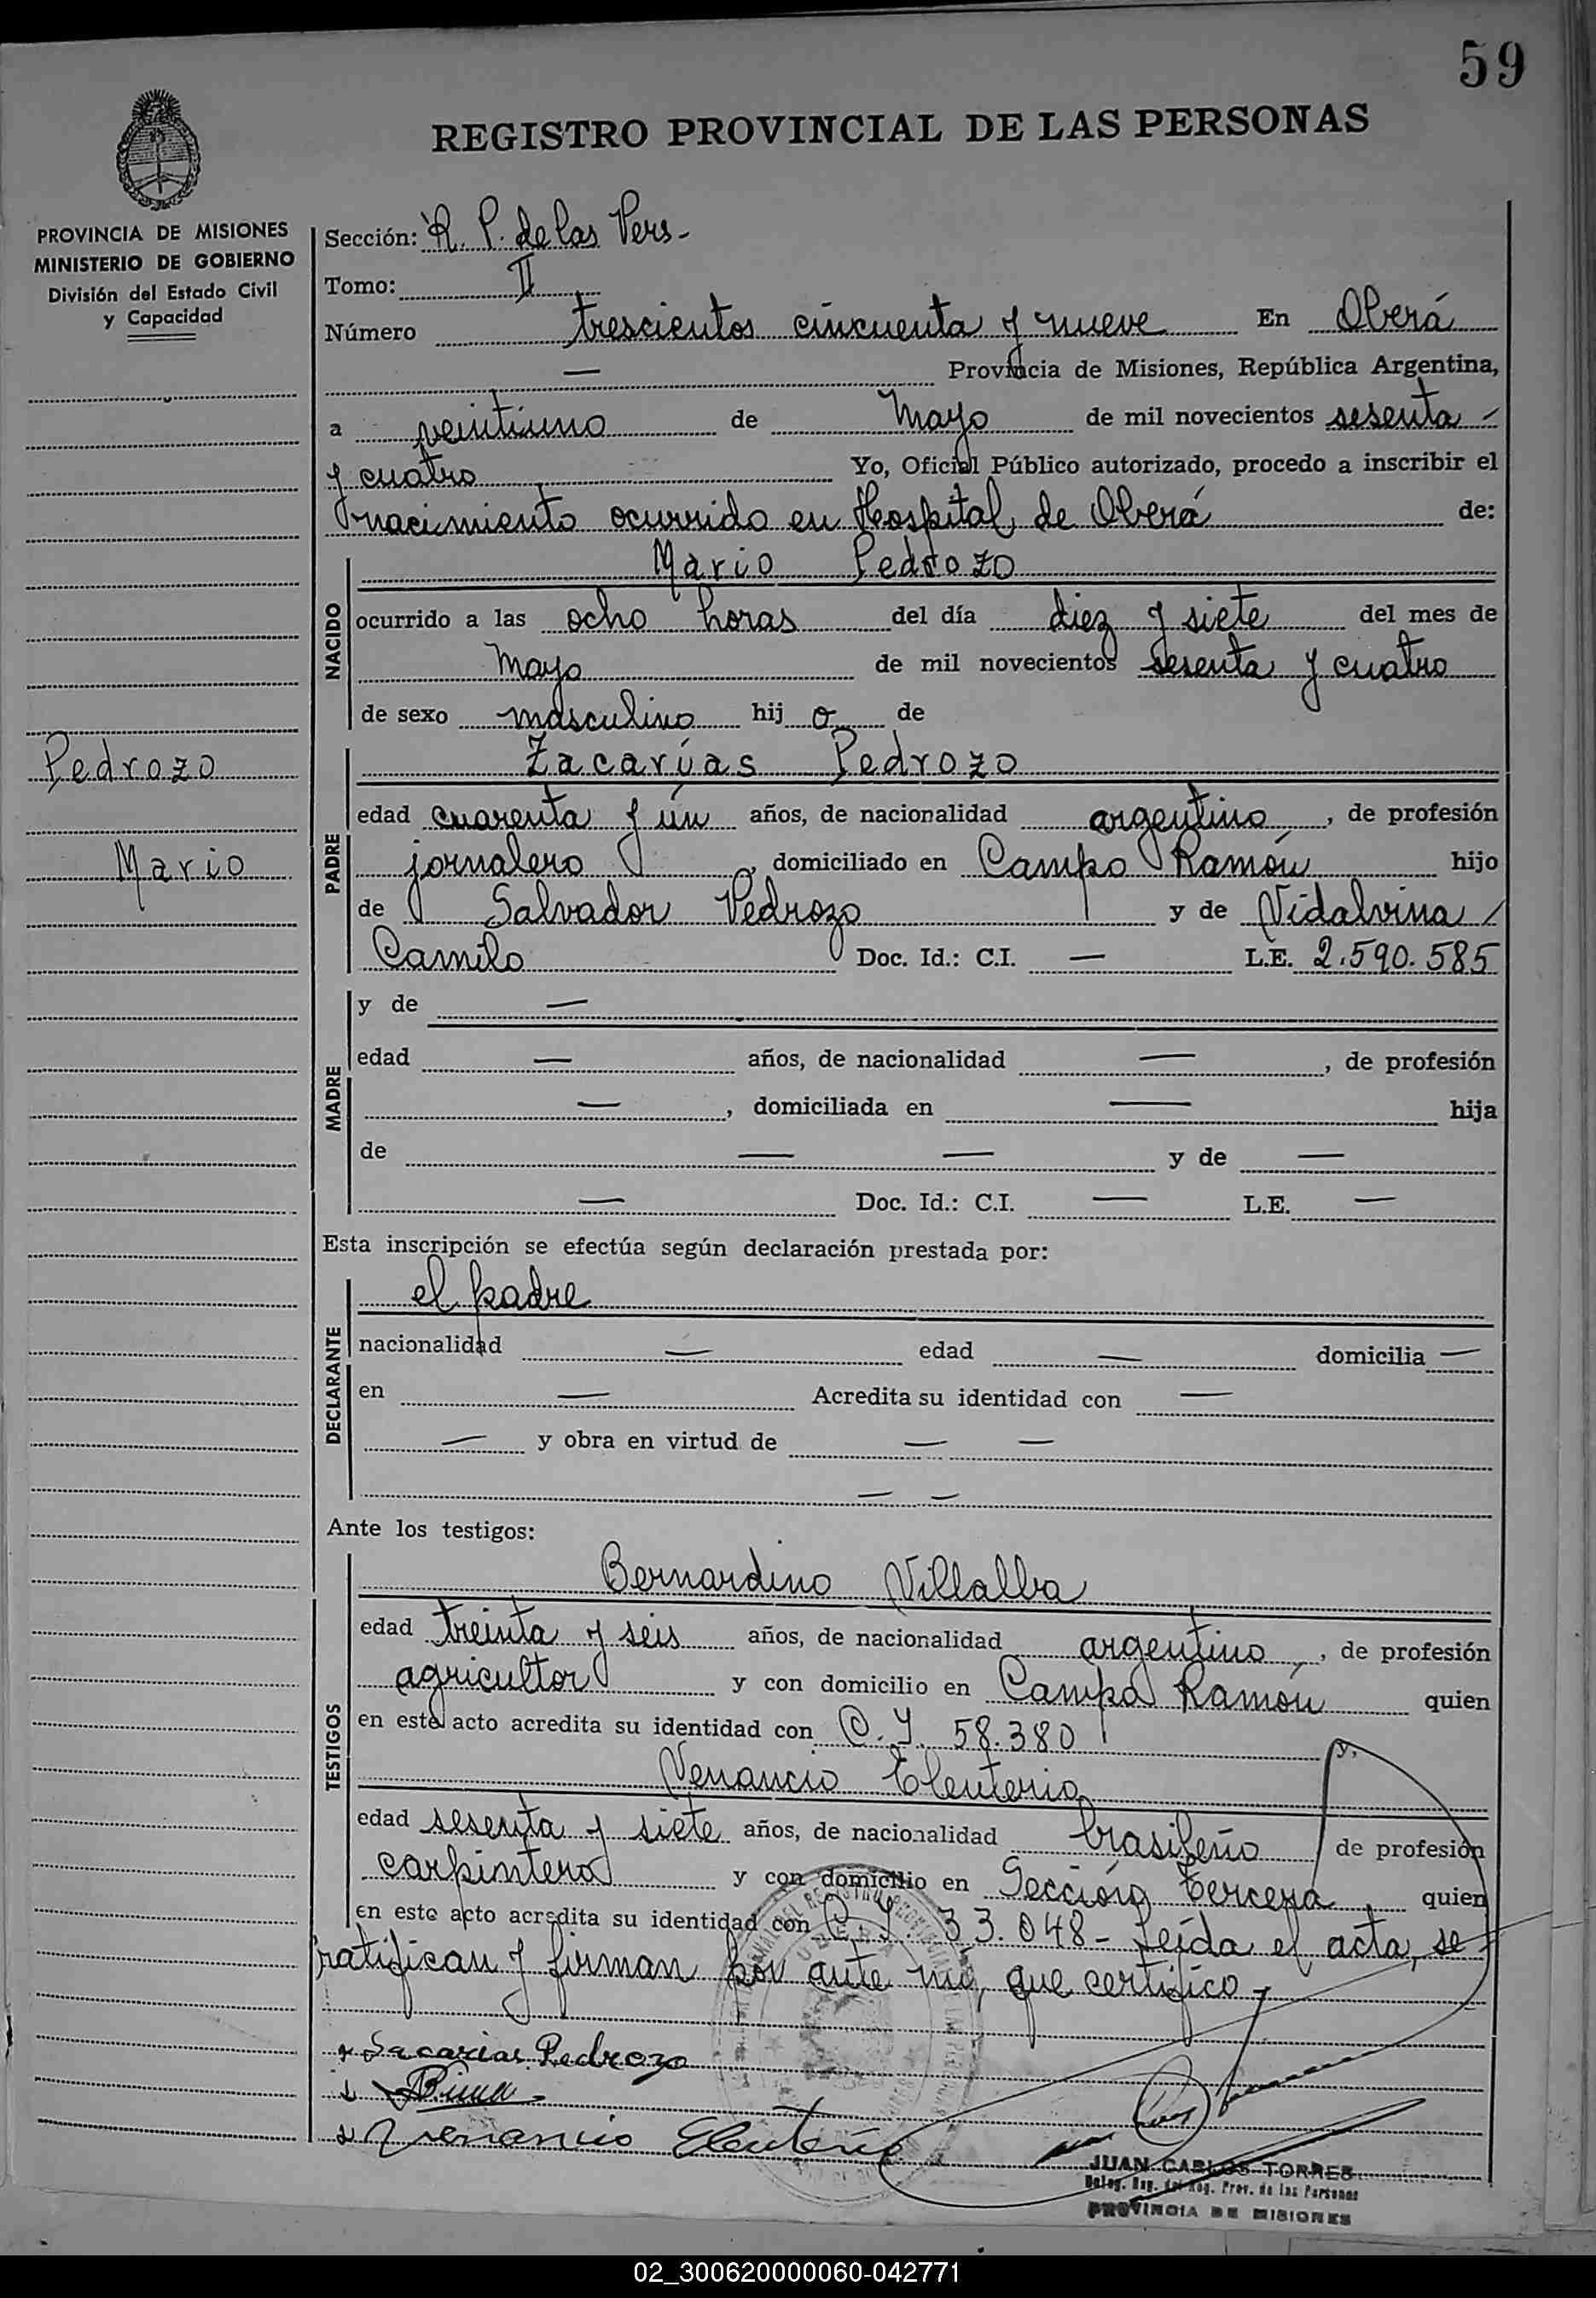 59
REGISTRO PROVINCIAL DE LAS PERSONAS
PROVINCIA DE MISIONES
MINISTERIO DE GOBIERNO
División del Estado Civil
y Capacidad
Sección: R. P. de las Pers-
Tomo: II
Número trescientos cincuenta y nueve En Oberá
— Provincia de Misiones, República Argentina,
a veintiuno de Mayo de mil novecientos sesenta
y cuatro Yo, Oficial Público autorizado, procedo a inscribir el
nacimiento ocurrido en Hospital, de Oberá de:
NACIDO
Mario Pedrozo
ocurrido a las ocho horas del día diez y siete del mes de
Mayo de mil novecientos sesenta y cuatro
de sexo masculino hij o de
Pedrozo
Mario
PADRE
Zacarías Pedrozo
edad cuarenta y ún años, de nacionalidad argentino, de profesión
jornalero, domiciliado en Campo Ramón hijo
de Salvador Pedrozo y de Vidalvina
Camilo Doc. Id.: C.I. — L.E. 2.590.585
MADRE
y de —
edad — años, de nacionalidad —, de profesión
—, domiciliada en — hija
de — — y de —
— Doc. Id.: C.I. — L.E. —
Esta inscripción se efectúa según declaración prestada por:
DECLARANTE
el padre
nacionalidad — edad — domicilia —
en — Acredita su identidad con —
— y obra en virtud de — —
— —
Ante los testigos:
TESTIGOS
Bernardino Villalba
edad treinta y seis años, de nacionalidad argentino, de profesión
agricultor y con domicilio en Campo Ramón quien
en este acto acredita su identidad con C.I. 58.380
y,
Venancio Eleuterio
edad sesenta y siete años, de nacionalidad brasileño de profesión
carpintero y con domicilio en Sección tercera quien
en este acto acredita su identidad con C.I. 33.048- Leída el acta, se
ratifican y firman por ante mí, que certifico-
Sacarias Pedrozo
Venancio Eleuterio
JUAN CARLOS TORRES
Deleg. Reg. del Reg. Prov. de las Personas
PROVINCIA DE MISIONES
02_300620000060-042771